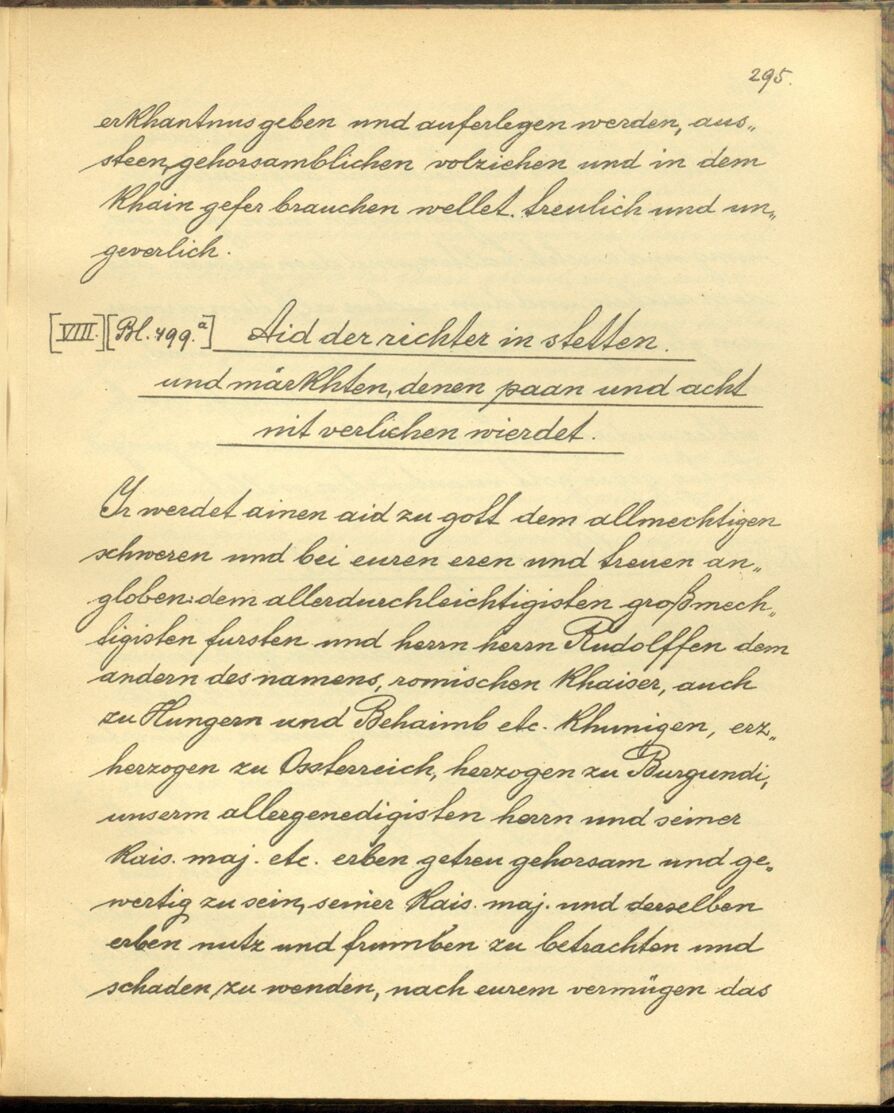 295.
erkhantnus geben und auferlegen werden, aus„
steen, gehorsamblichen volziehen und in dem
khain gefer brauchen wellet. treulich und un„
geverlich.
[VIII.][Bl. 499.a] Aid der richter in stetten
und märkhten, denen paan und acht
nit verlichen wierdet.
Ir werdet ainen aid zu gott dem allmechtigen
schweren und bei euren eren und treuen an„
globen: dem allerdurchleichtigisten großmech„
tigisten fursten und herrn herrn Rudolffen dem
andern des namens, romischen khaiser, auch
zu Hungern und Behaimb etc. khunigen, erz„
herzogen zu Ossterreich, herzogen zu Burgundi,
unserm allergenedigisten herrn und seiner
kais. maj. etc. erben getreu gehorsam und ge„
wertig zu sein, seiner kais. maj. und derselben
erben nutz und frumben zu betrachten und
schaden zu wenden, nach eurem vermügen das